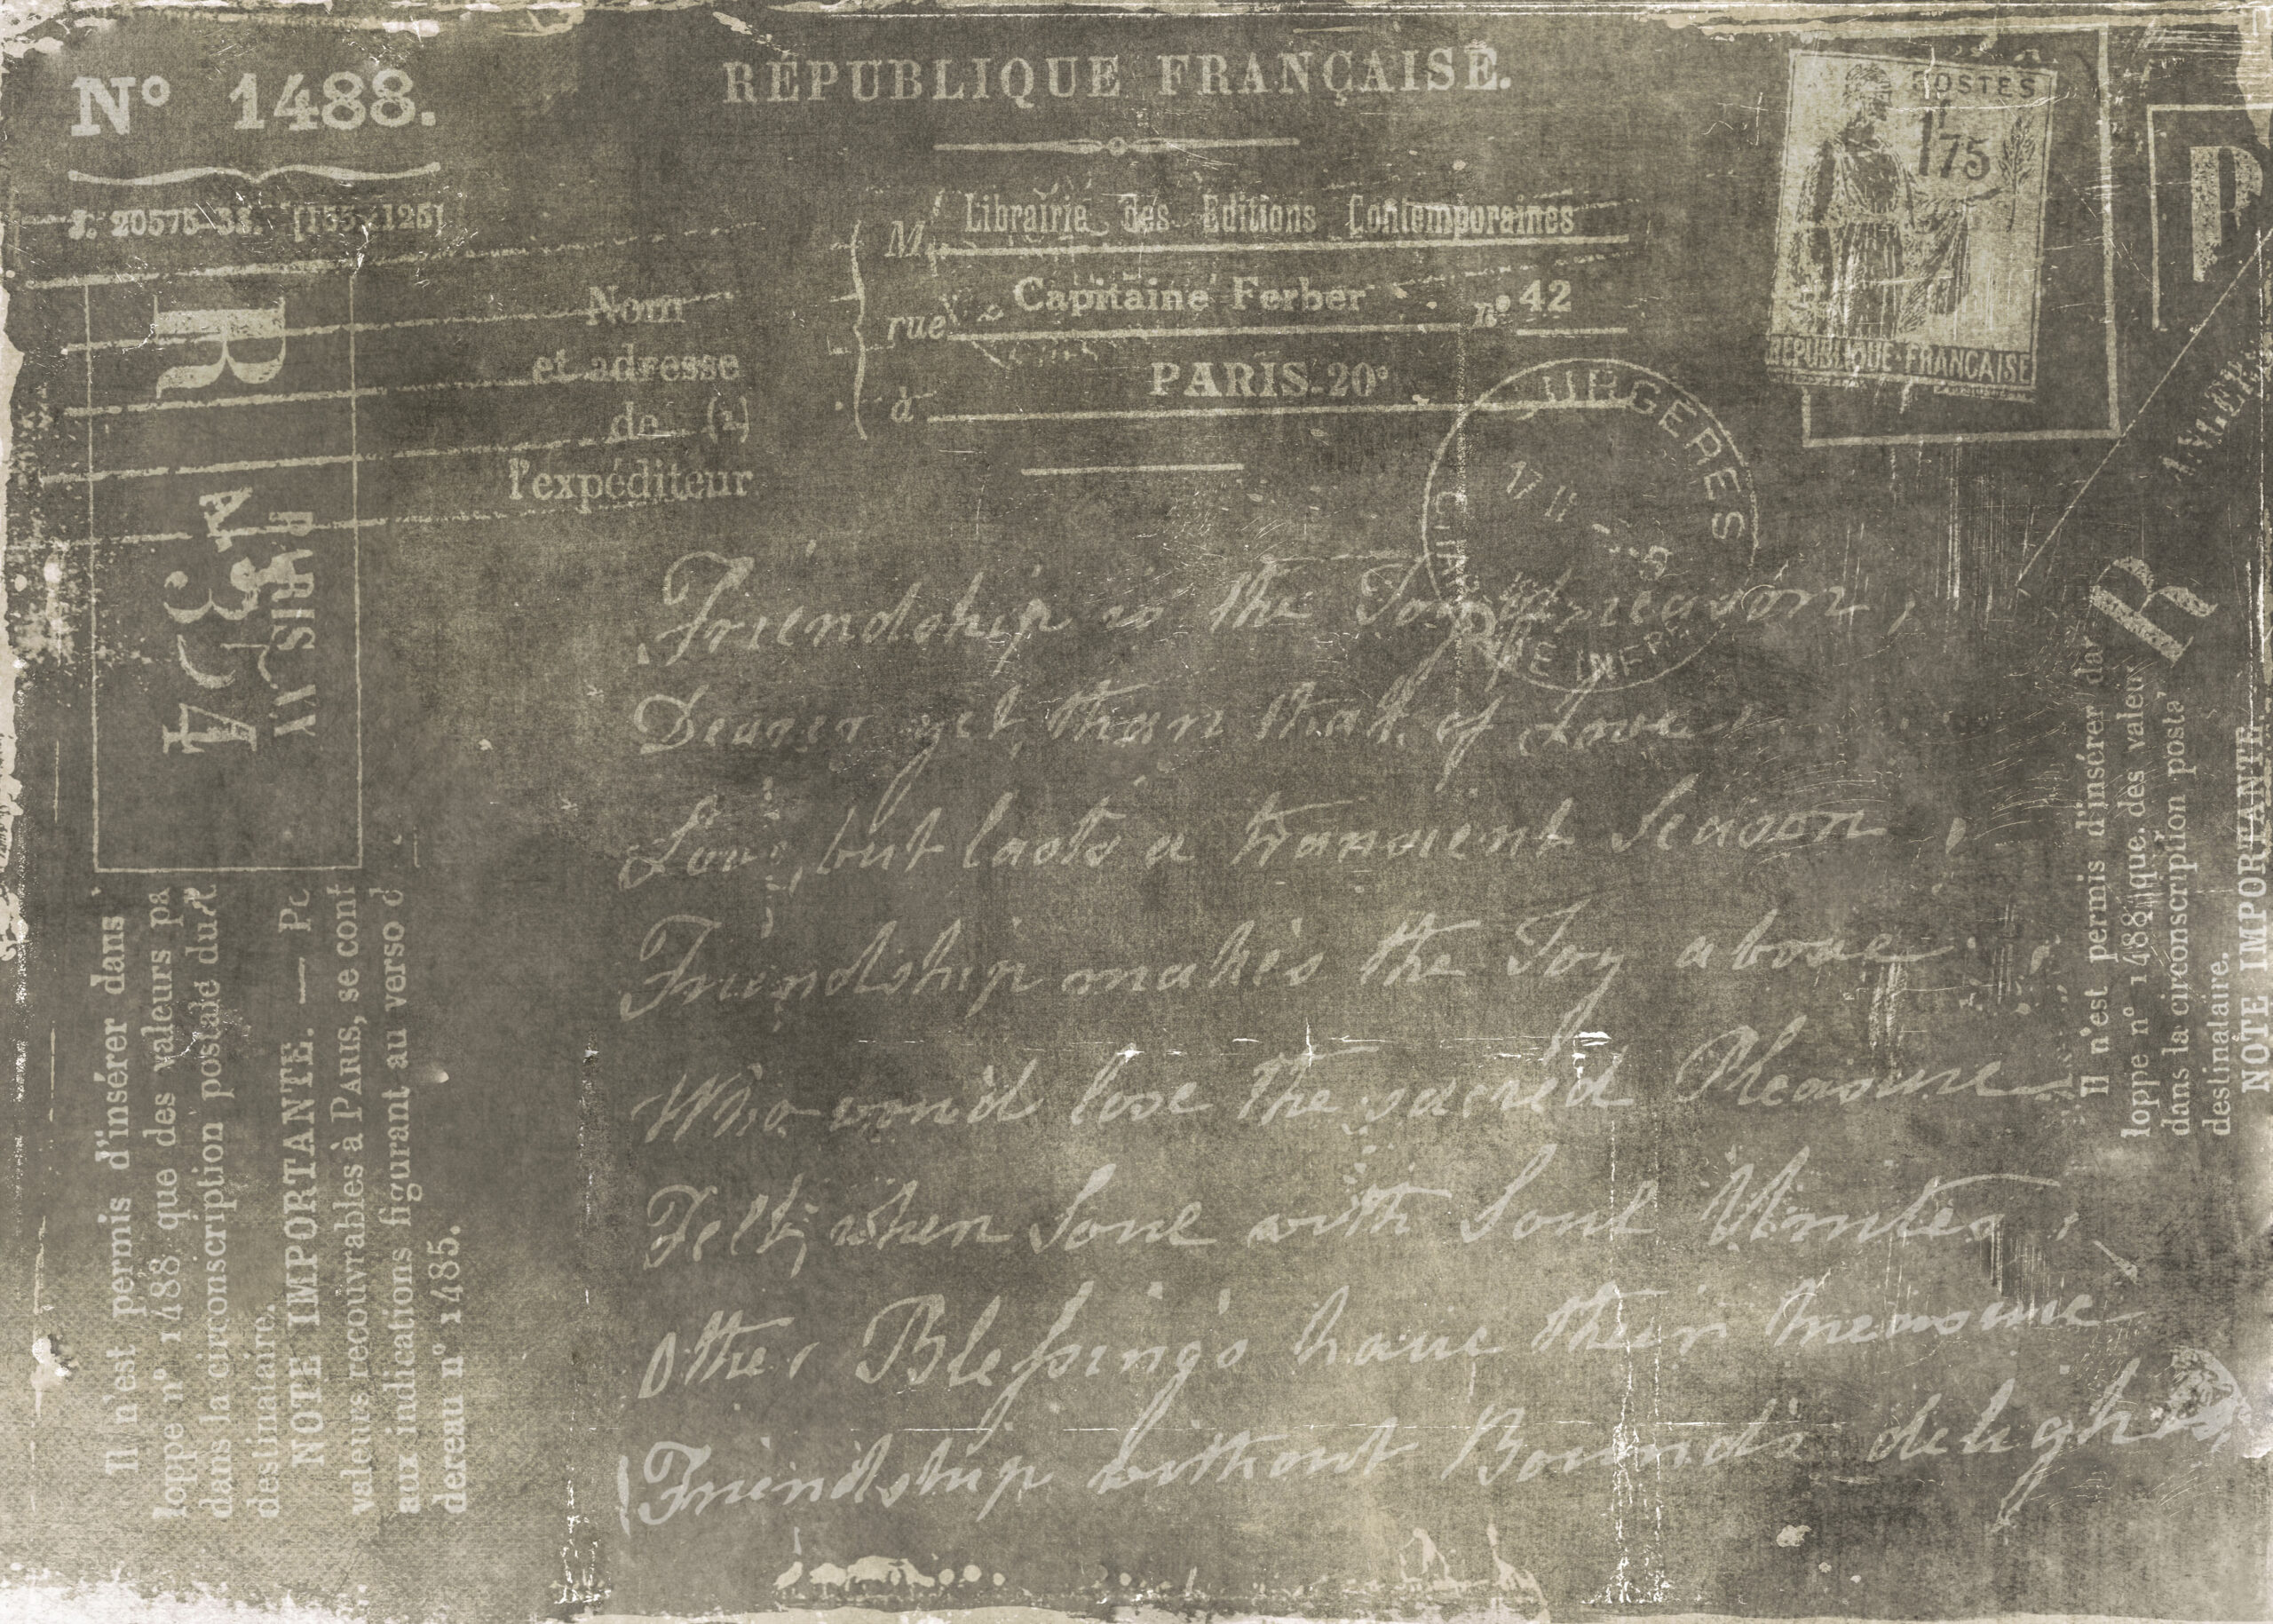 N° 1488.
J. 20575-33.
RÉPUBLIQUE FRANÇAISE.
Nom
et adresse
de (1)
l'expéditeur
M. Librairie des Editions Contemporaines
rue Capitaine Ferber n° 42
à PARIS-20e
POSTES
1f 75
REPUBLIQUE FRANCAISE
URGERES
17 II
INFRE
P
R
R
PARIS XV
Friendship is the Joy of reason,
Dearer yet than that of Love
Love, but lasts a transient Season,
Friendship makes the Joy above,
Who wou'd lose the sacred Pleasure
Felt, when Soul with Soul Unites,
Other Blessings have their measure
Friendship without Bounds delights
Il n'est permis d'insérer dans
loppe n° 1488 que des valeurs pa
dans la circonscription postale du
destinataire.
NOTE IMPORTANTE. —
valeurs recouvrables à PARIS, se cont
aux indications figurant au verso d
dereau n° 1485.
Il n'est permis d'insérer dar
loppe n° 1488 que des valeur
dans la circonscription posta
destinataire.
NOTE IMPORTANTE.